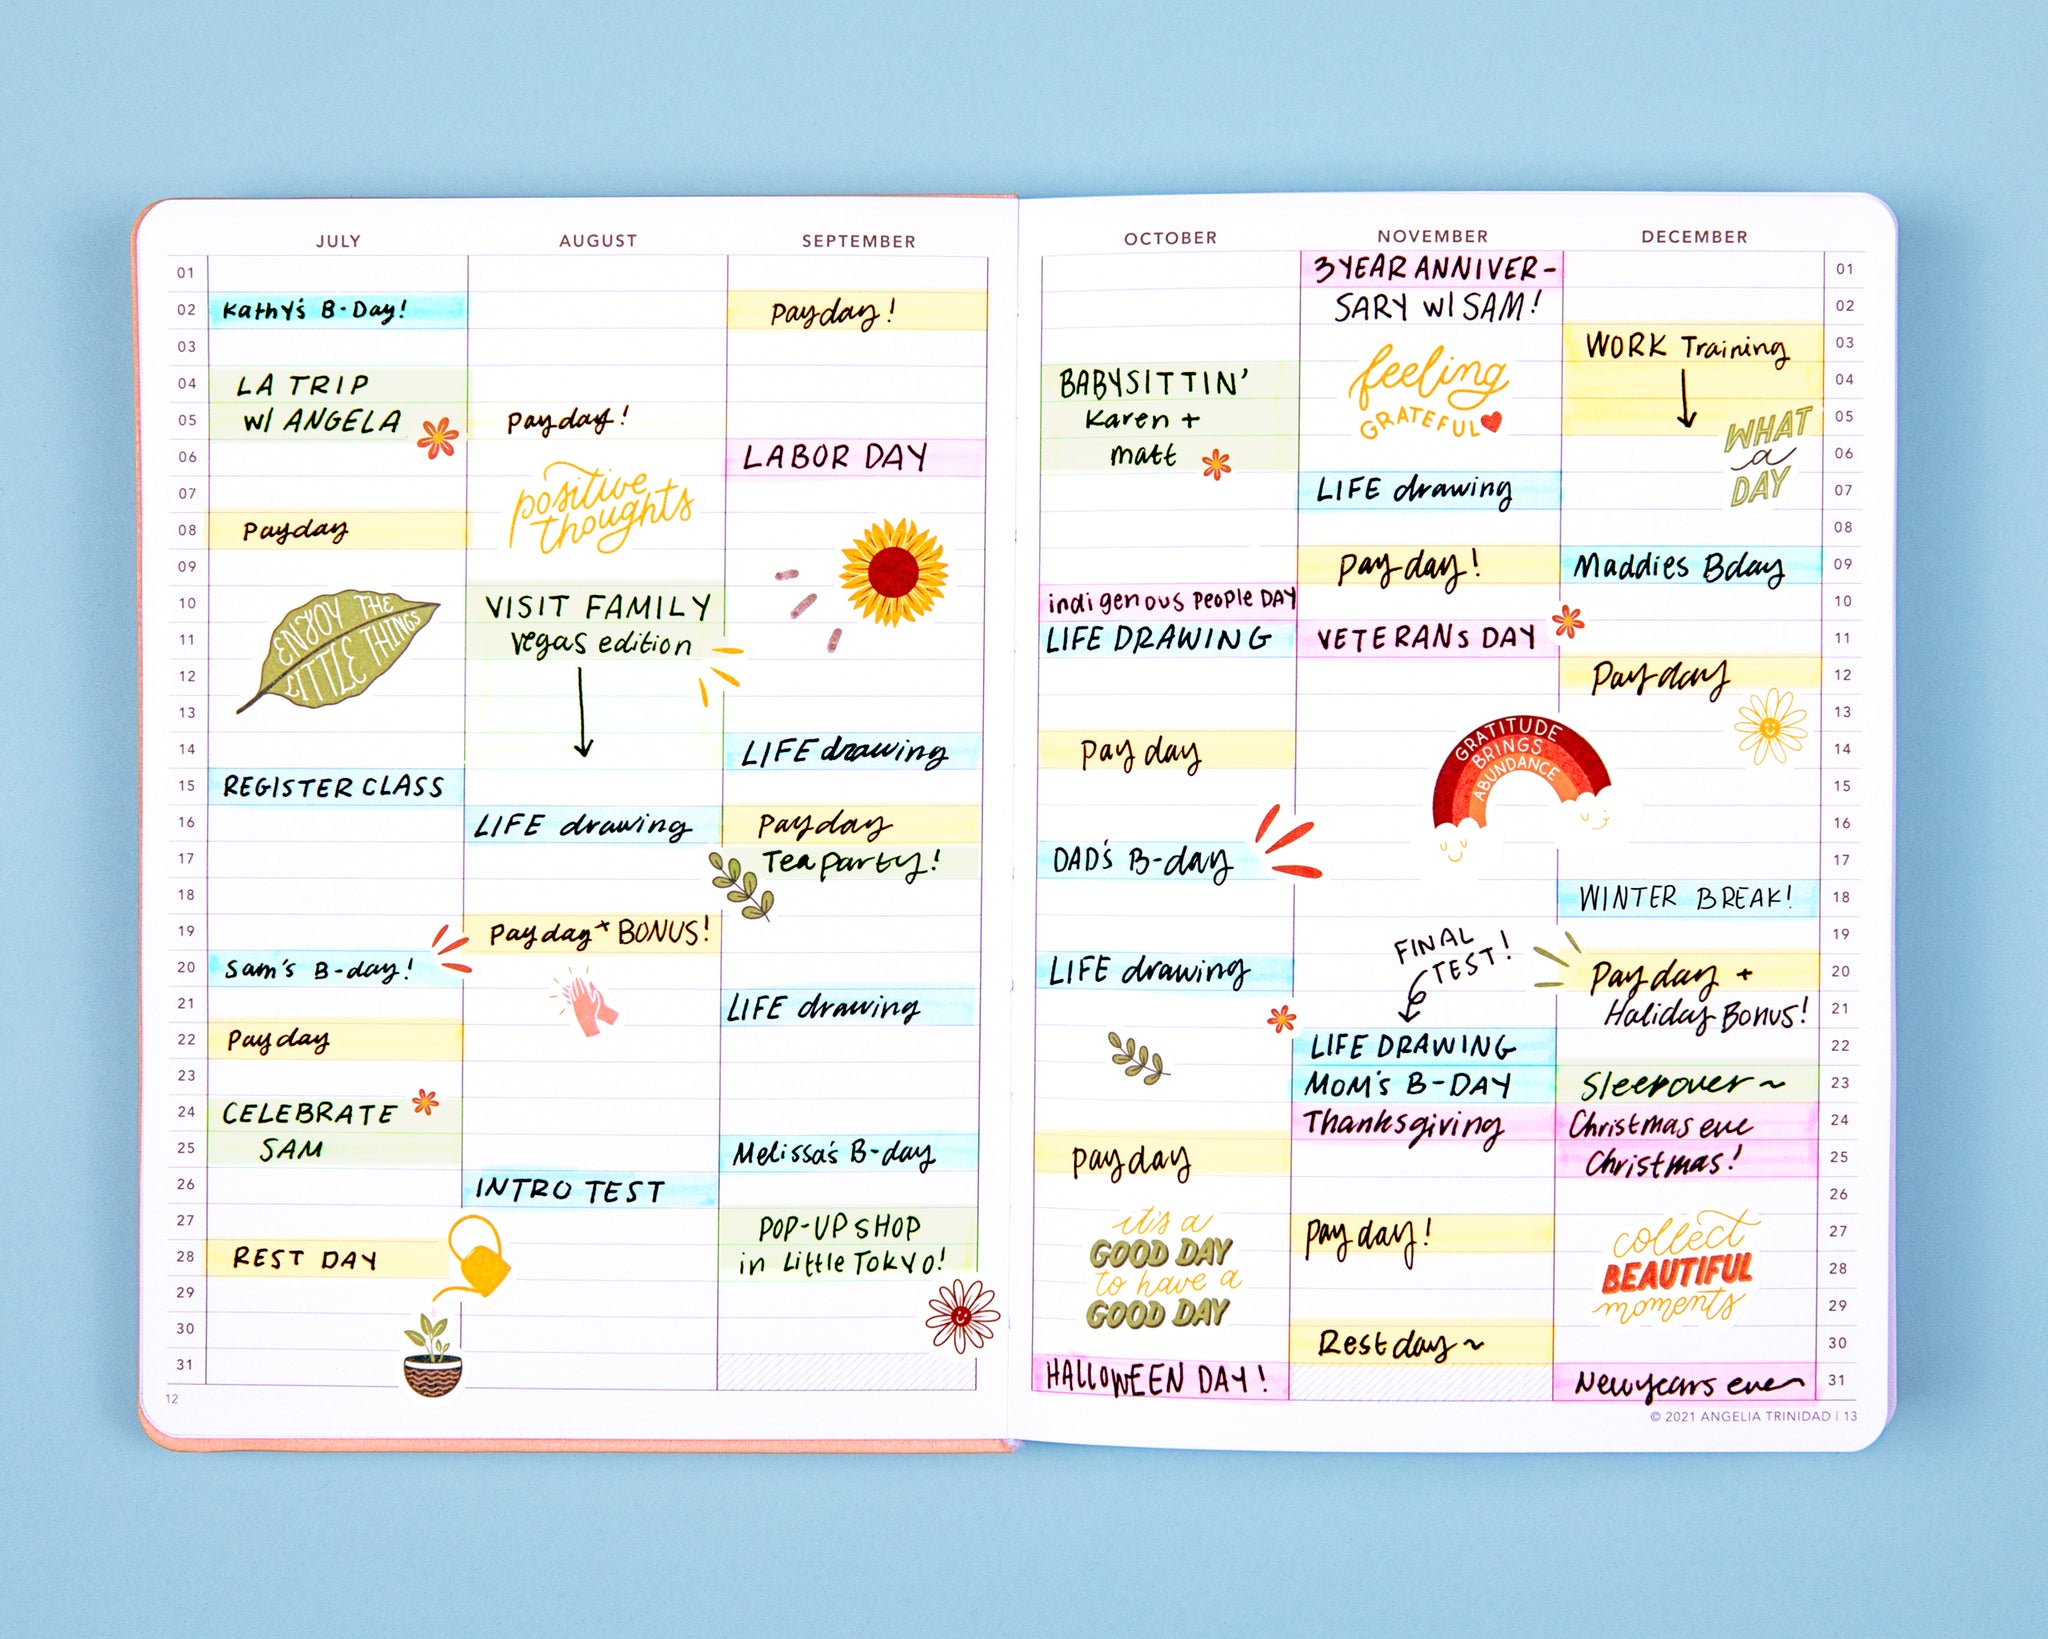 JULY
AUGUST
SEPTEMBER
01
02
Kathy's B-Day!
Payday!
03
04
LA TRIP
05
w/ ANGELA
Payday!
06
LABOR DAY
07
positive
thoughts
08
Payday
09
10
ENJOY THE
LITTLE THINGS
VISIT FAMILY
11
Vegas edition
12
13
14
LIFE drawing
15
REGISTER CLASS
16
LIFE drawing
Payday
17
Tea party!
18
19
Payday + BONUS!
20
Sam's B-day!
21
LIFE drawing
22
Payday
23
24
CELEBRATE
25
SAM
Melissa's B-day
26
INTRO TEST
27
POP-UP SHOP
28
REST DAY
in Little Tokyo!
29
30
31
12
OCTOBER
NOVEMBER
DECEMBER
3 YEAR ANNIVER-
01
SARY w/ SAM!
02
feeling
GRATEFUL
WORK Training
03
BABYSITTIN'
04
Karen +
05
matt
06
WHAT
a
DAY
LIFE drawing
07
08
Payday!
Maddies Bday
09
indigenous People DAY
10
LIFE DRAWING
VETERANS DAY
11
Payday
12
13
Payday
14
GRATITUDE
BRINGS
ABUNDANCE
15
16
DAD'S B-day
17
WINTER BREAK!
18
FINAL
TEST!
19
LIFE drawing
Payday +
20
Holiday Bonus!
21
LIFE DRAWING
22
MOM'S B-DAY
Sleepover ~
23
Thanksgiving
Christmas eve
24
Payday
Christmas!
25
26
it's a
GOOD DAY
to have a
GOOD DAY
Payday!
27
collect
BEAUTIFUL
moments
28
29
Rest day ~
30
HALLOWEEN DAY!
New years eve
31
© 2021 ANGELIA TRINIDAD | 13